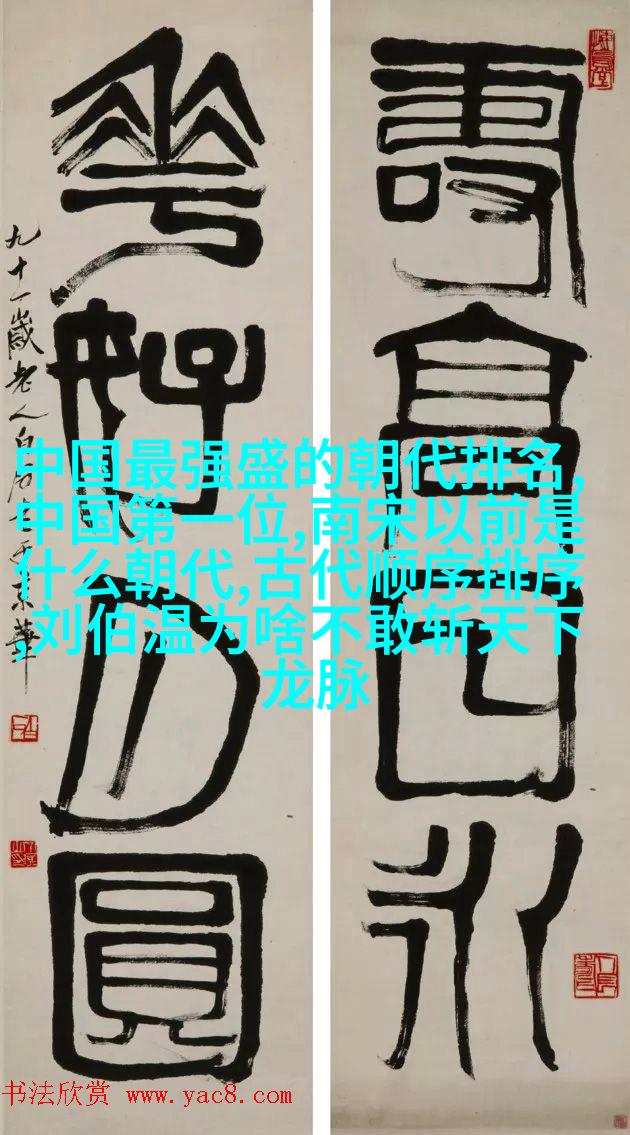 壽高日永
花好月圓
九十一歲老人白石于京華
中国最强盛的朝代排名,
中国第一位,南宋以前是
什么朝代,古代顺序排序
,刘伯温为啥不敢斩天下
龙脉
书法欣赏 www.yac8.com